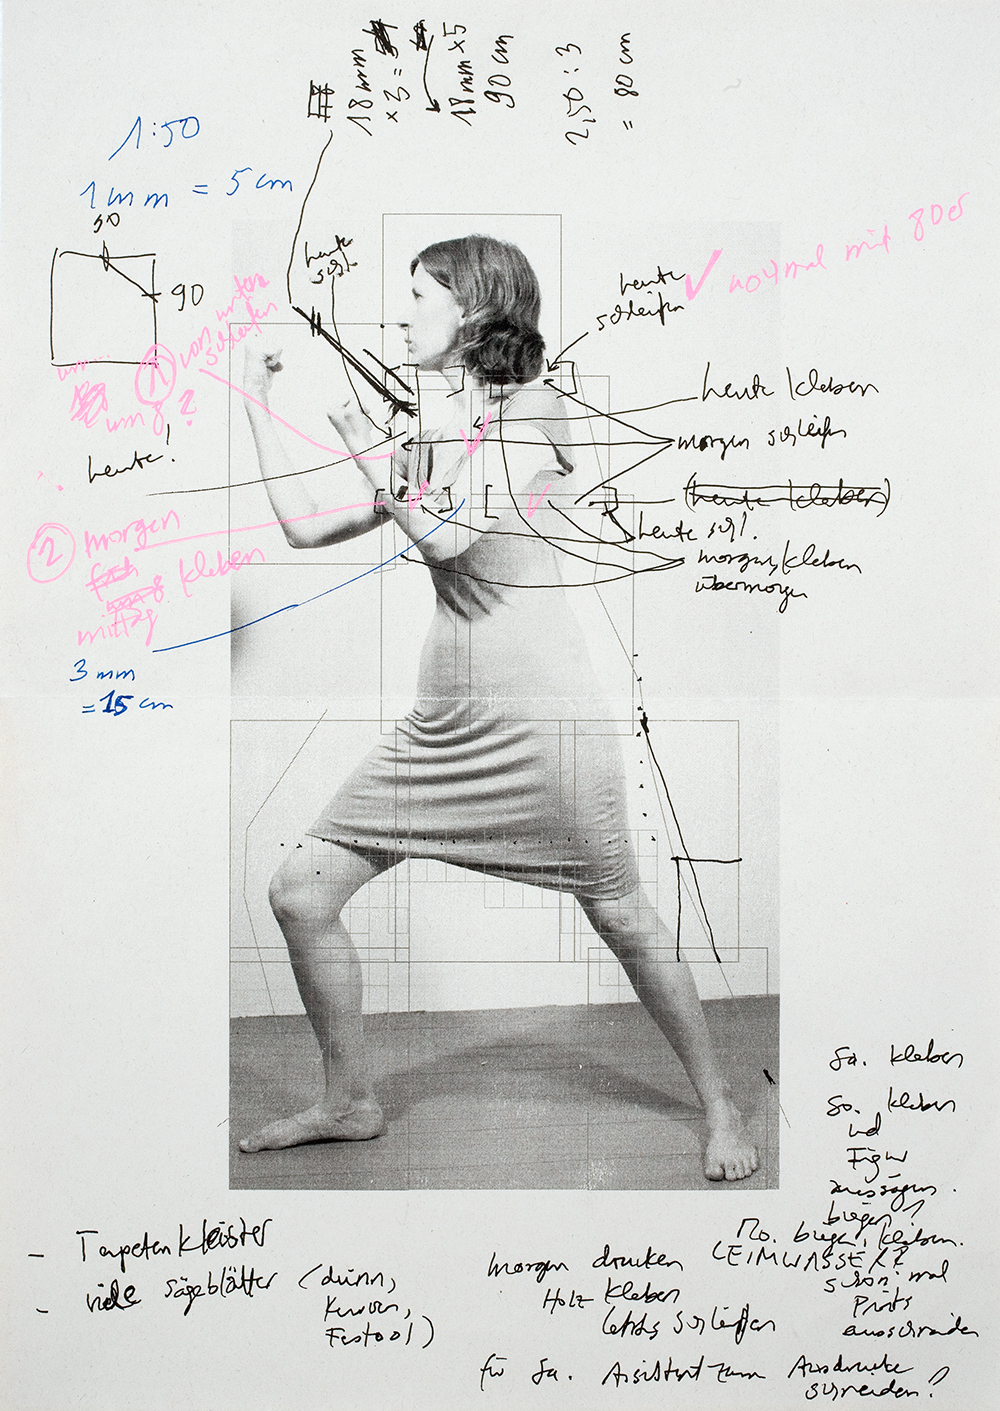 18 mm
x 3 =
18 mm x 5
90 cm
2,50 : 3
= 80 cm
1:50
1 mm = 5 cm
50
90
heute
heute
schleifen
normal mit 80er
1
von unten
schleifen
um 8?
heute!
heute kleben
morgen schleifen
(heute kleben)
heute sch!
morgen kleben
übermorgen
2
morgen
kleben
mittag
3 mm
= 15 cm
Sa. kleben
So. kleben
und
Figur
aussägen.
biegen?
Mo. biegen, kleben.
LEIMWASSER?
schon mal
Prints
ausschneiden
- Tapetenkleister
- viele Sägeblätter (dünn,
Kurven,
Festool)
morgen drucken
Holz kleben
letztes Schleifen
für Sa. Assistent zum Ausdrucke
schneiden?